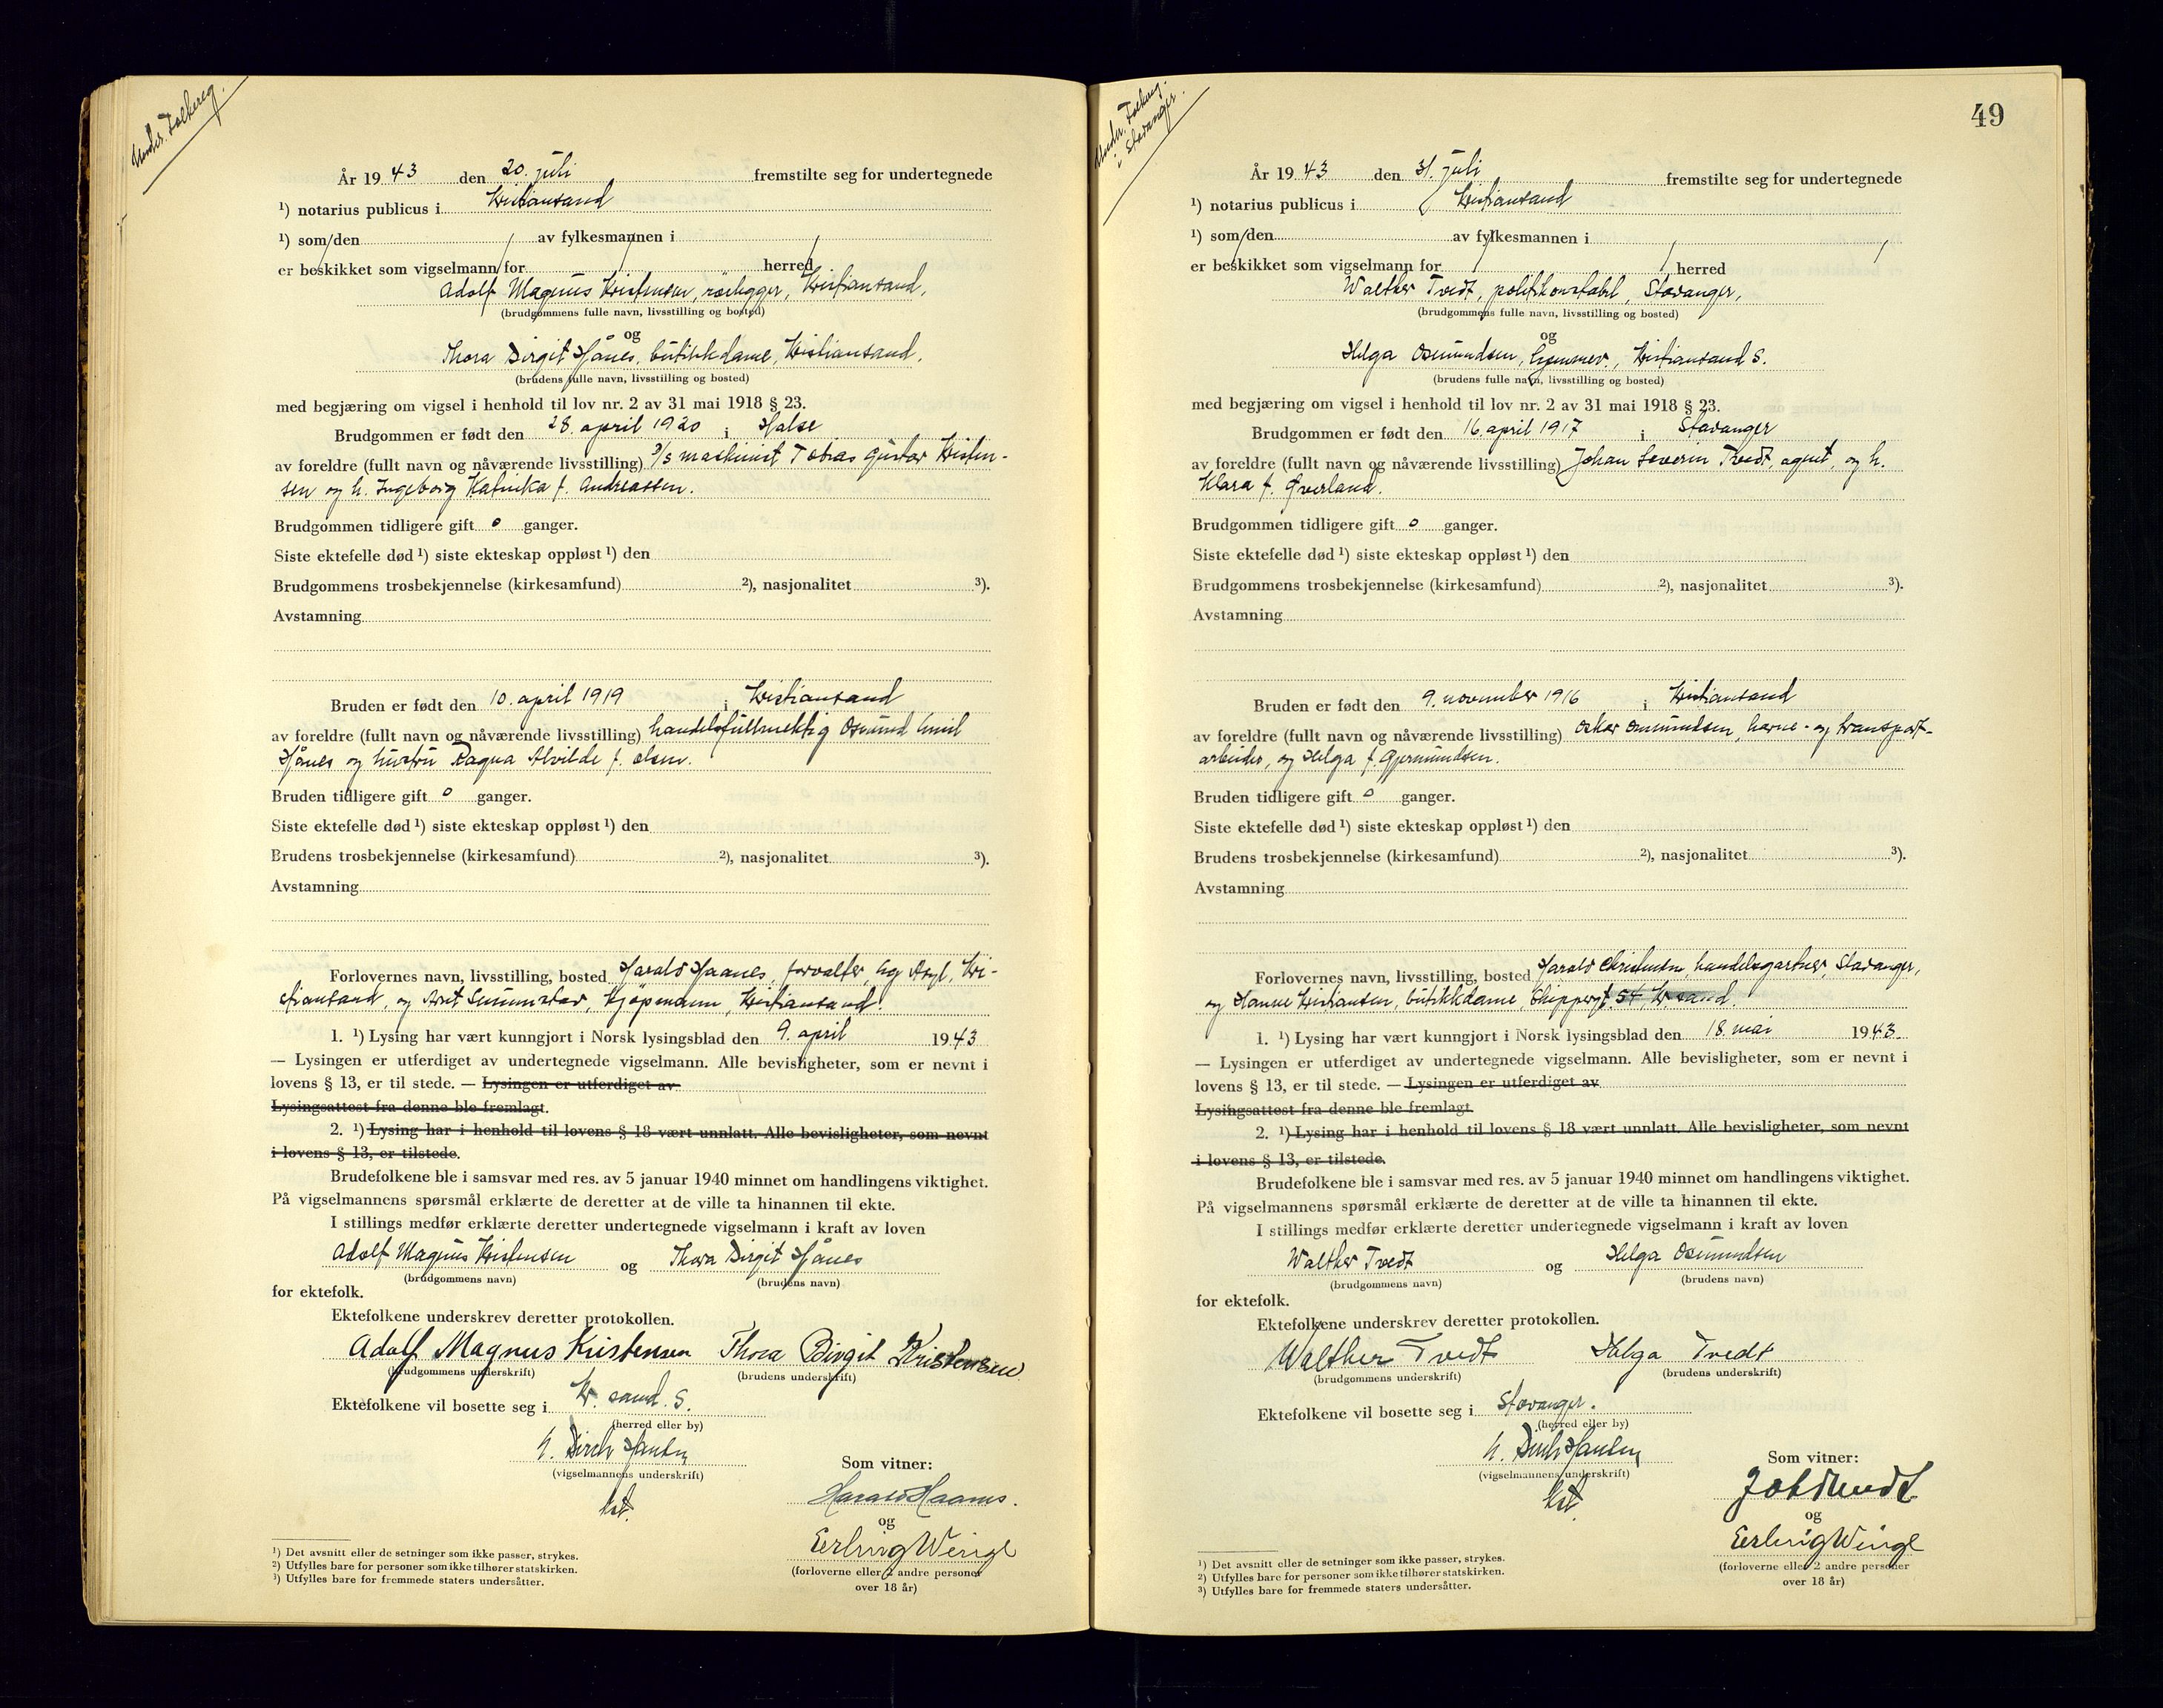 Underr. Folkereg.
År 1943 den 20. juli fremstilte seg for undertegnede
¹) notarius publicus i Kristiansand
¹) som/den av fylkesmannen i
er beskikket som vigselmann for herred
Adolf Magnus Kristensen, rørlegger, Kristiansand,
(brudgommens fulle navn, livsstilling og bosted)
og
Thora Birgit Hånes, butikkdame, Kristiansand,
(brudens fulle navn, livsstilling og bosted)
med begjæring om vigsel i henhold til lov nr. 2 av 31 mai 1918 § 23.
Brudgommen er født den 28. april 1920 i Halse
av foreldre (fullt navn og nåværende livsstilling) maskinist Tobias Gustav Kristen-
sen og h. Ingeborg Katinka f. Andreassen.
Brudgommen tidligere gift 0 ganger.
Siste ektefelle død ¹) siste ekteskap oppløst ¹) den
Brudgommens trosbekjennelse (kirkesamfund) ²), nasjonalitet ³).
Avstamning
Bruden er født den 10. april 1919 i Kristiansand
av foreldre (fullt navn og nåværende livsstilling) handelsfullmektig Osmund Emil
Hånes og hustru Ragna Alvilde f. Olsen.
Bruden tidligere gift 0 ganger.
Siste ektefelle død ¹) siste ekteskap oppløst ¹) den
Brudens trosbekjennelse (kirkesamfund) ²), nasjonalitet ³).
Avstamning
Forlovernes navn, livsstilling, bosted Harald Haanes, forvalter, Eg Asyl, Kri-
stiansand, og Kjøpmann, Kristiansand.
1. ¹) Lysing har vært kunngjort i Norsk lysingsblad den 9. april 1943
— Lysingen er utferdiget av undertegnede vigselmann. Alle bevisligheter, som er nevnt i
lovens § 13, er til stede. — Lysingen er utferdiget av
Lysingsattest fra denne ble fremlagt.
2. ¹) Lysing har i henhold til lovens § 18 vært unnlatt. Alle bevisligheter, som nevnt
i lovens § 13, er tilstede.
Brudefolkene ble i samsvar med res. av 5 januar 1940 minnet om handlingens viktighet.
På vigselmannens spørsmål erklærte de deretter at de ville ta hinannen til ekte.
I stillings medfør erklærte deretter undertegnede vigselmann i kraft av loven
Adolf Magnus Kristensen og Thora Birgit Hånes
(brudgommens navn) (brudens navn)
for ektefolk.
Ektefolkene underskrev deretter protokollen.
Adolf Magnus Kristensen Thora Birgit Kristensen
(brudgommens underskrift) (brudens underskrift)
Ektefolkene vil bosette seg i Kr.sand. S.
(herred eller by)
Birch Hansen
(vigselmannens underskrift)
Som vitner:
Harald Haanes.
og
Erling Winge
(forloverne eller 2 andre personer
over 18 år)
¹) Det avsnitt eller de setninger som ikke passer, strykes.
²) Utfylles bare for personer som ikke tilhører statskirken.
³) Utfylles bare for fremmede staters undersåtter.
Underr. Folkereg.
i Stavanger.
49
År 1943 den 31. juli fremstilte seg for undertegnede
¹) notarius publicus i Kristiansand
¹) som/den av fylkesmannen i
er beskikket som vigselmann for herred
Walther Tvedt, politikonstabel, Stavanger,
(brudgommens fulle navn, livsstilling og bosted)
og
Helga Osmundsen, hjemmev., Kristiansand S.
(brudens fulle navn, livsstilling og bosted)
med begjæring om vigsel i henhold til lov nr. 2 av 31 mai 1918 § 23.
Brudgommen er født den 16. april 1917 i Stavanger
av foreldre (fullt navn og nåværende livsstilling) Johan Severin Tvedt, agent, og h.
Klara f. Øverland.
Brudgommen tidligere gift 0 ganger.
Siste ektefelle død ¹) siste ekteskap oppløst ¹) den
Brudgommens trosbekjennelse (kirkesamfund) ²), nasjonalitet ³).
Avstamning
Bruden er født den 9. november 1916 i Kristiansand
av foreldre (fullt navn og nåværende livsstilling) Oskar Osmundsen, havne- og transport-
arbeider, og Helga f. Gjermundsen.
Bruden tidligere gift 0 ganger.
Siste ektefelle død ¹) siste ekteskap oppløst ¹) den
Brudens trosbekjennelse (kirkesamfund) ²), nasjonalitet ³).
Avstamning
Forlovernes navn, livsstilling, bosted Harald Christensen, handelsgartner, Stavanger,
og Hanne Kristiansen, butikkdame, Skippergt. 54 Kr.sand.
1. ¹) Lysing har vært kunngjort i Norsk lysingsblad den 18. mai 1943.
— Lysingen er utferdiget av undertegnede vigselmann. Alle bevisligheter, som er nevnt i
lovens § 13, er til stede. — Lysingen er utferdiget av
Lysingsattest fra denne ble fremlagt.
2. ¹) Lysing har i henhold til lovens § 18 vært unnlatt. Alle bevisligheter, som nevnt
i lovens § 13, er tilstede.
Brudefolkene ble i samsvar med res. av 5 januar 1940 minnet om handlingens viktighet.
På vigselmannens spørsmål erklærte de deretter at de ville ta hinannen til ekte.
I stillings medfør erklærte deretter undertegnede vigselmann i kraft av loven
Walther Tvedt og Helga Osmundsen
(brudgommens navn) (brudens navn)
for ektefolk.
Ektefolkene underskrev deretter protokollen.
Walther Tvedt Helga Tvedt
(brudgommens underskrift) (brudens underskrift)
Ektefolkene vil bosette seg i Stavanger.
(herred eller by)
Birch Hansen
(vigselmannens underskrift)
Som vitner:
og
Erling Winge
(forloverne eller 2 andre personer
over 18 år)
¹) Det avsnitt eller de setninger som ikke passer, strykes.
²) Utfylles bare for personer som ikke tilhører statskirken.
³) Utfylles bare for fremmede staters undersåtter.